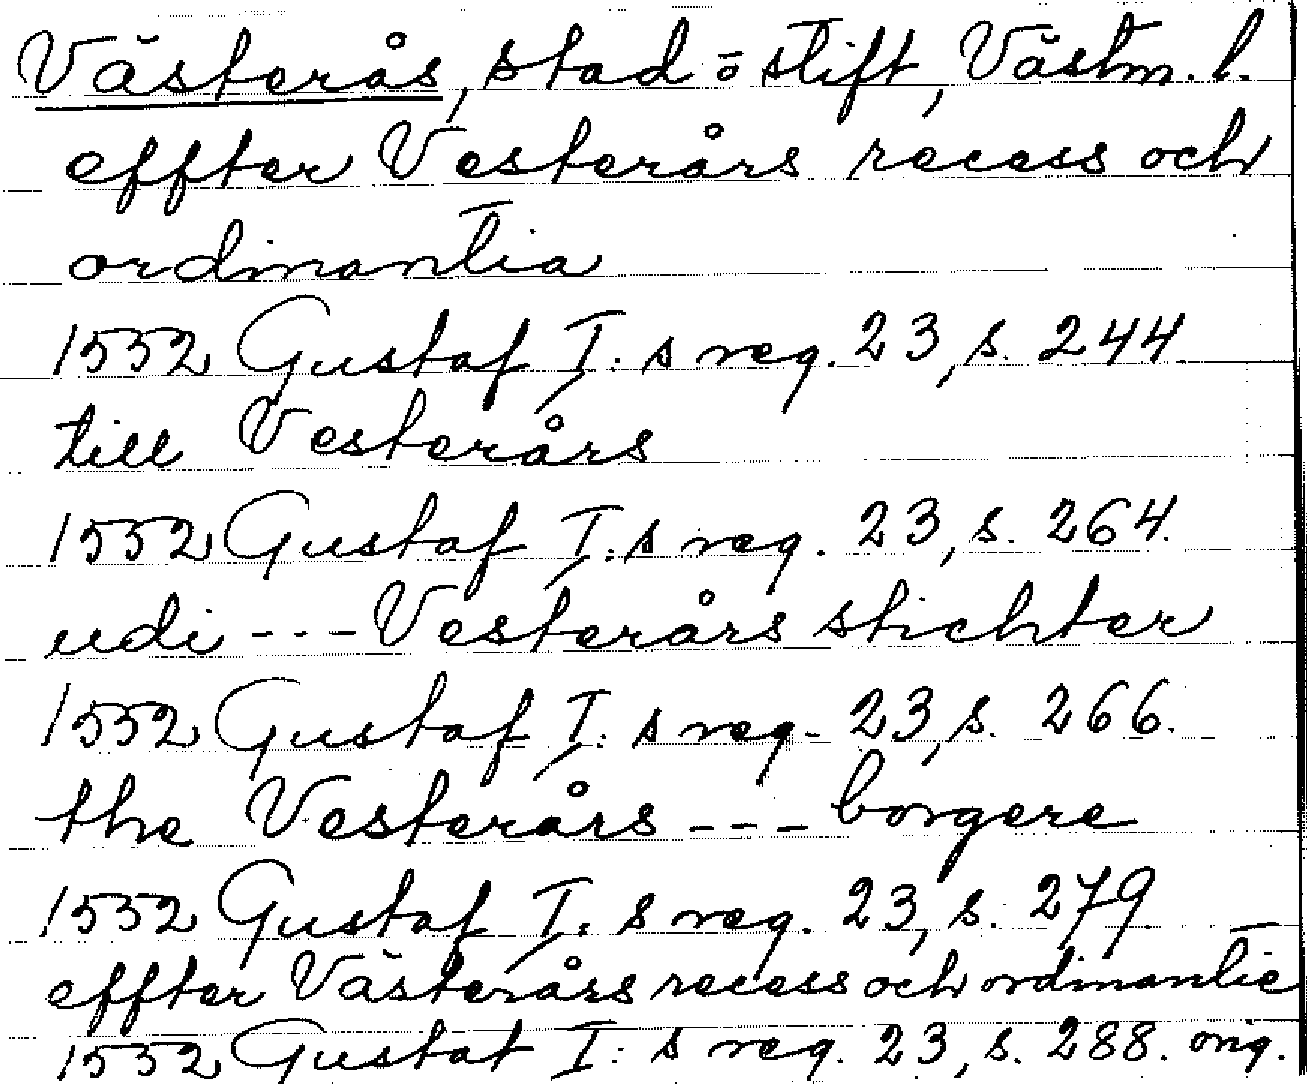 Västerås, stad o stift, Västm. l.
effter Vesterårs recess och
ordinantia
1552 Gustaf I: s reg. 23, s. 244
till Vesterårs
1552 Gustaf I: s reg. 23, s. 264.
udi --- Vesterårs stichter
1552 Gustaf I: s reg. 23, s. 266.
the Vesterårs --- borgere
1552 Gustaf I: s reg. 23, s. 279
effter Västerårs recess och ordinantie
1552 Gustaf I: s reg. 23, s. 288. orig.